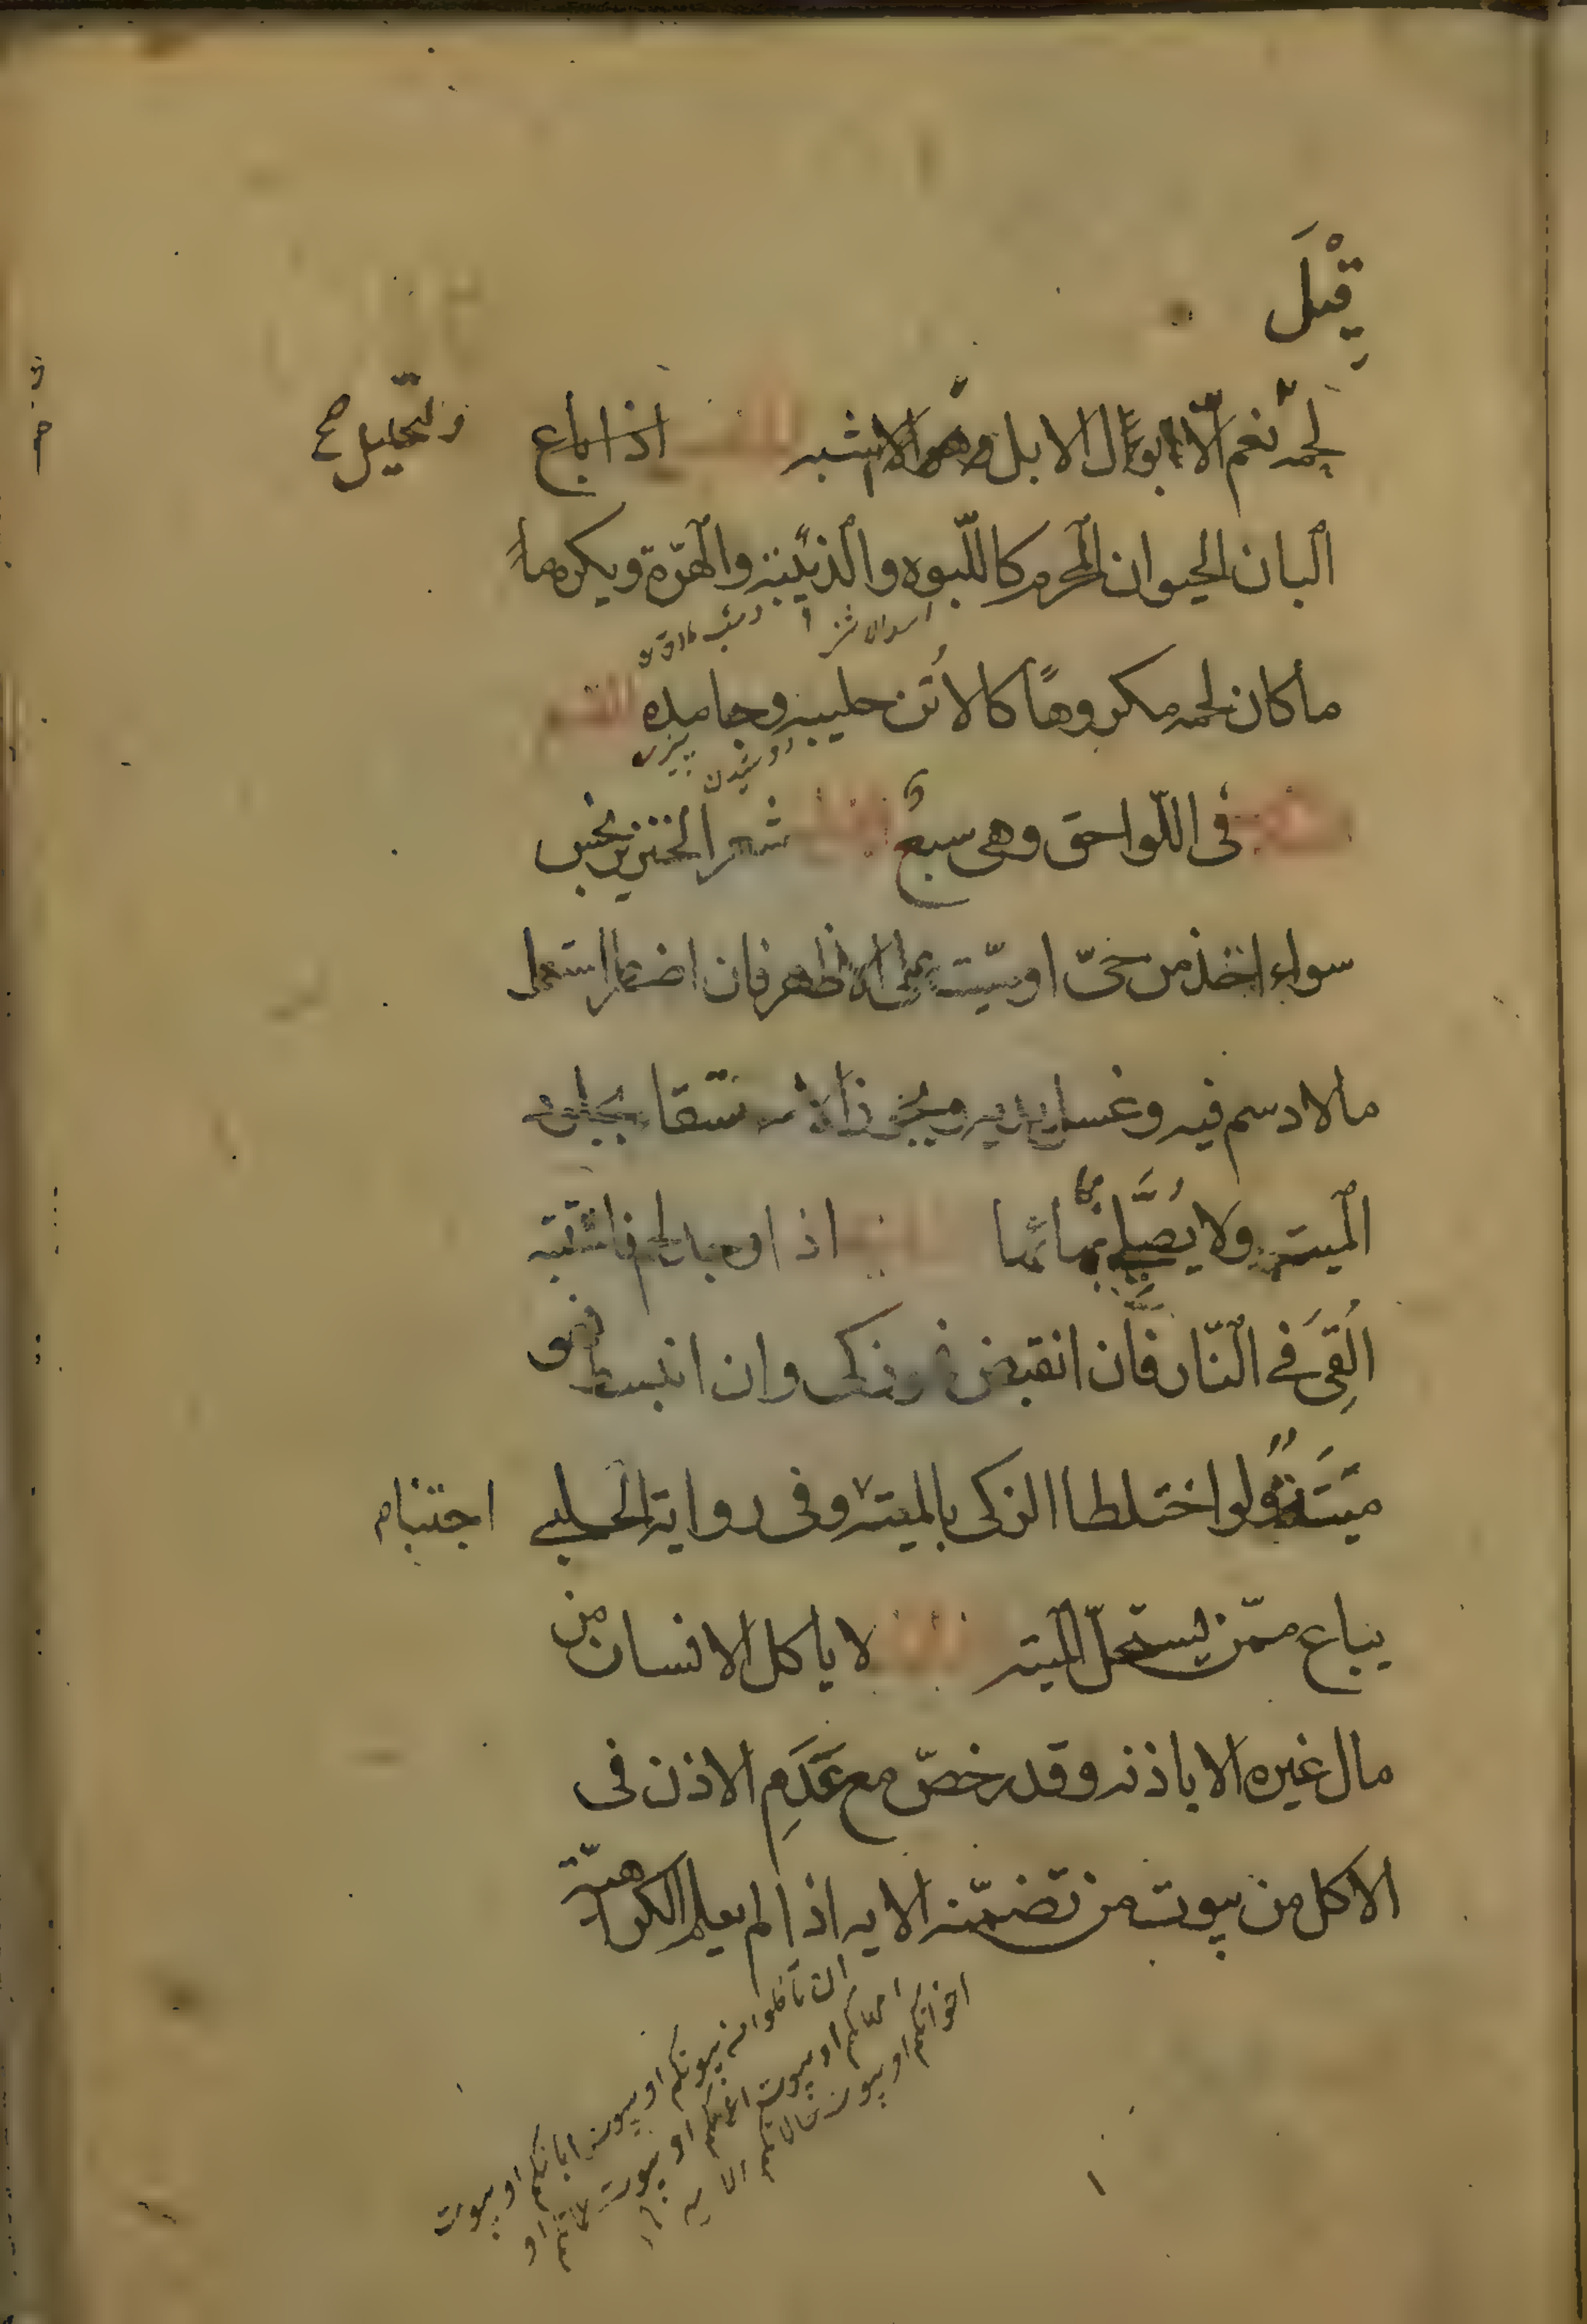 قِيْلَ
لحمه نعم الّا ابوال الابل وهو الاشبه اذا باع والتحليل صح
البان الحيوان المحرم كاللّبوه والذئبة والهرّة ويكره لبن
ما كان لحمه مكروهًا كالاُتن حليبه وجامده القسم
فى اللّواحق وهى سبعٌ شعر الخنزير نجس
سواء اخذ من حىّ او ميّت على الاظهر فان اضطر استعمل
ما لا دسم فيه وغسل يديه ويجوز الاستقاء بجلود
الميتة ولا يُصَلّى بمائها اذا وجد لحم فاشتبه
اُلقِىَ فى النّار فان انقبض فهو ذكى وان انبسط فهو
ميّتةٌ ولو اختلطا الذكى بالميتة وفى رواية الحلبى اجتنبا م
يباع ممّن يستحلّ الميته لا ياكل الانسان من
مال غيره الا باذنه وقد رخصّ مع عَدَمِ الاذن فى
الاكل من بيوت من تضمّنه الايه اذا لم يعلم الكراهيّة
ان تاكلوا من بيوتكم او بيوت ابائكم او بيوت
امهاتكم او بيوت اعمامكم او بيوت عماتكم او
اخوانكم او بيوت خالاتكم الايه